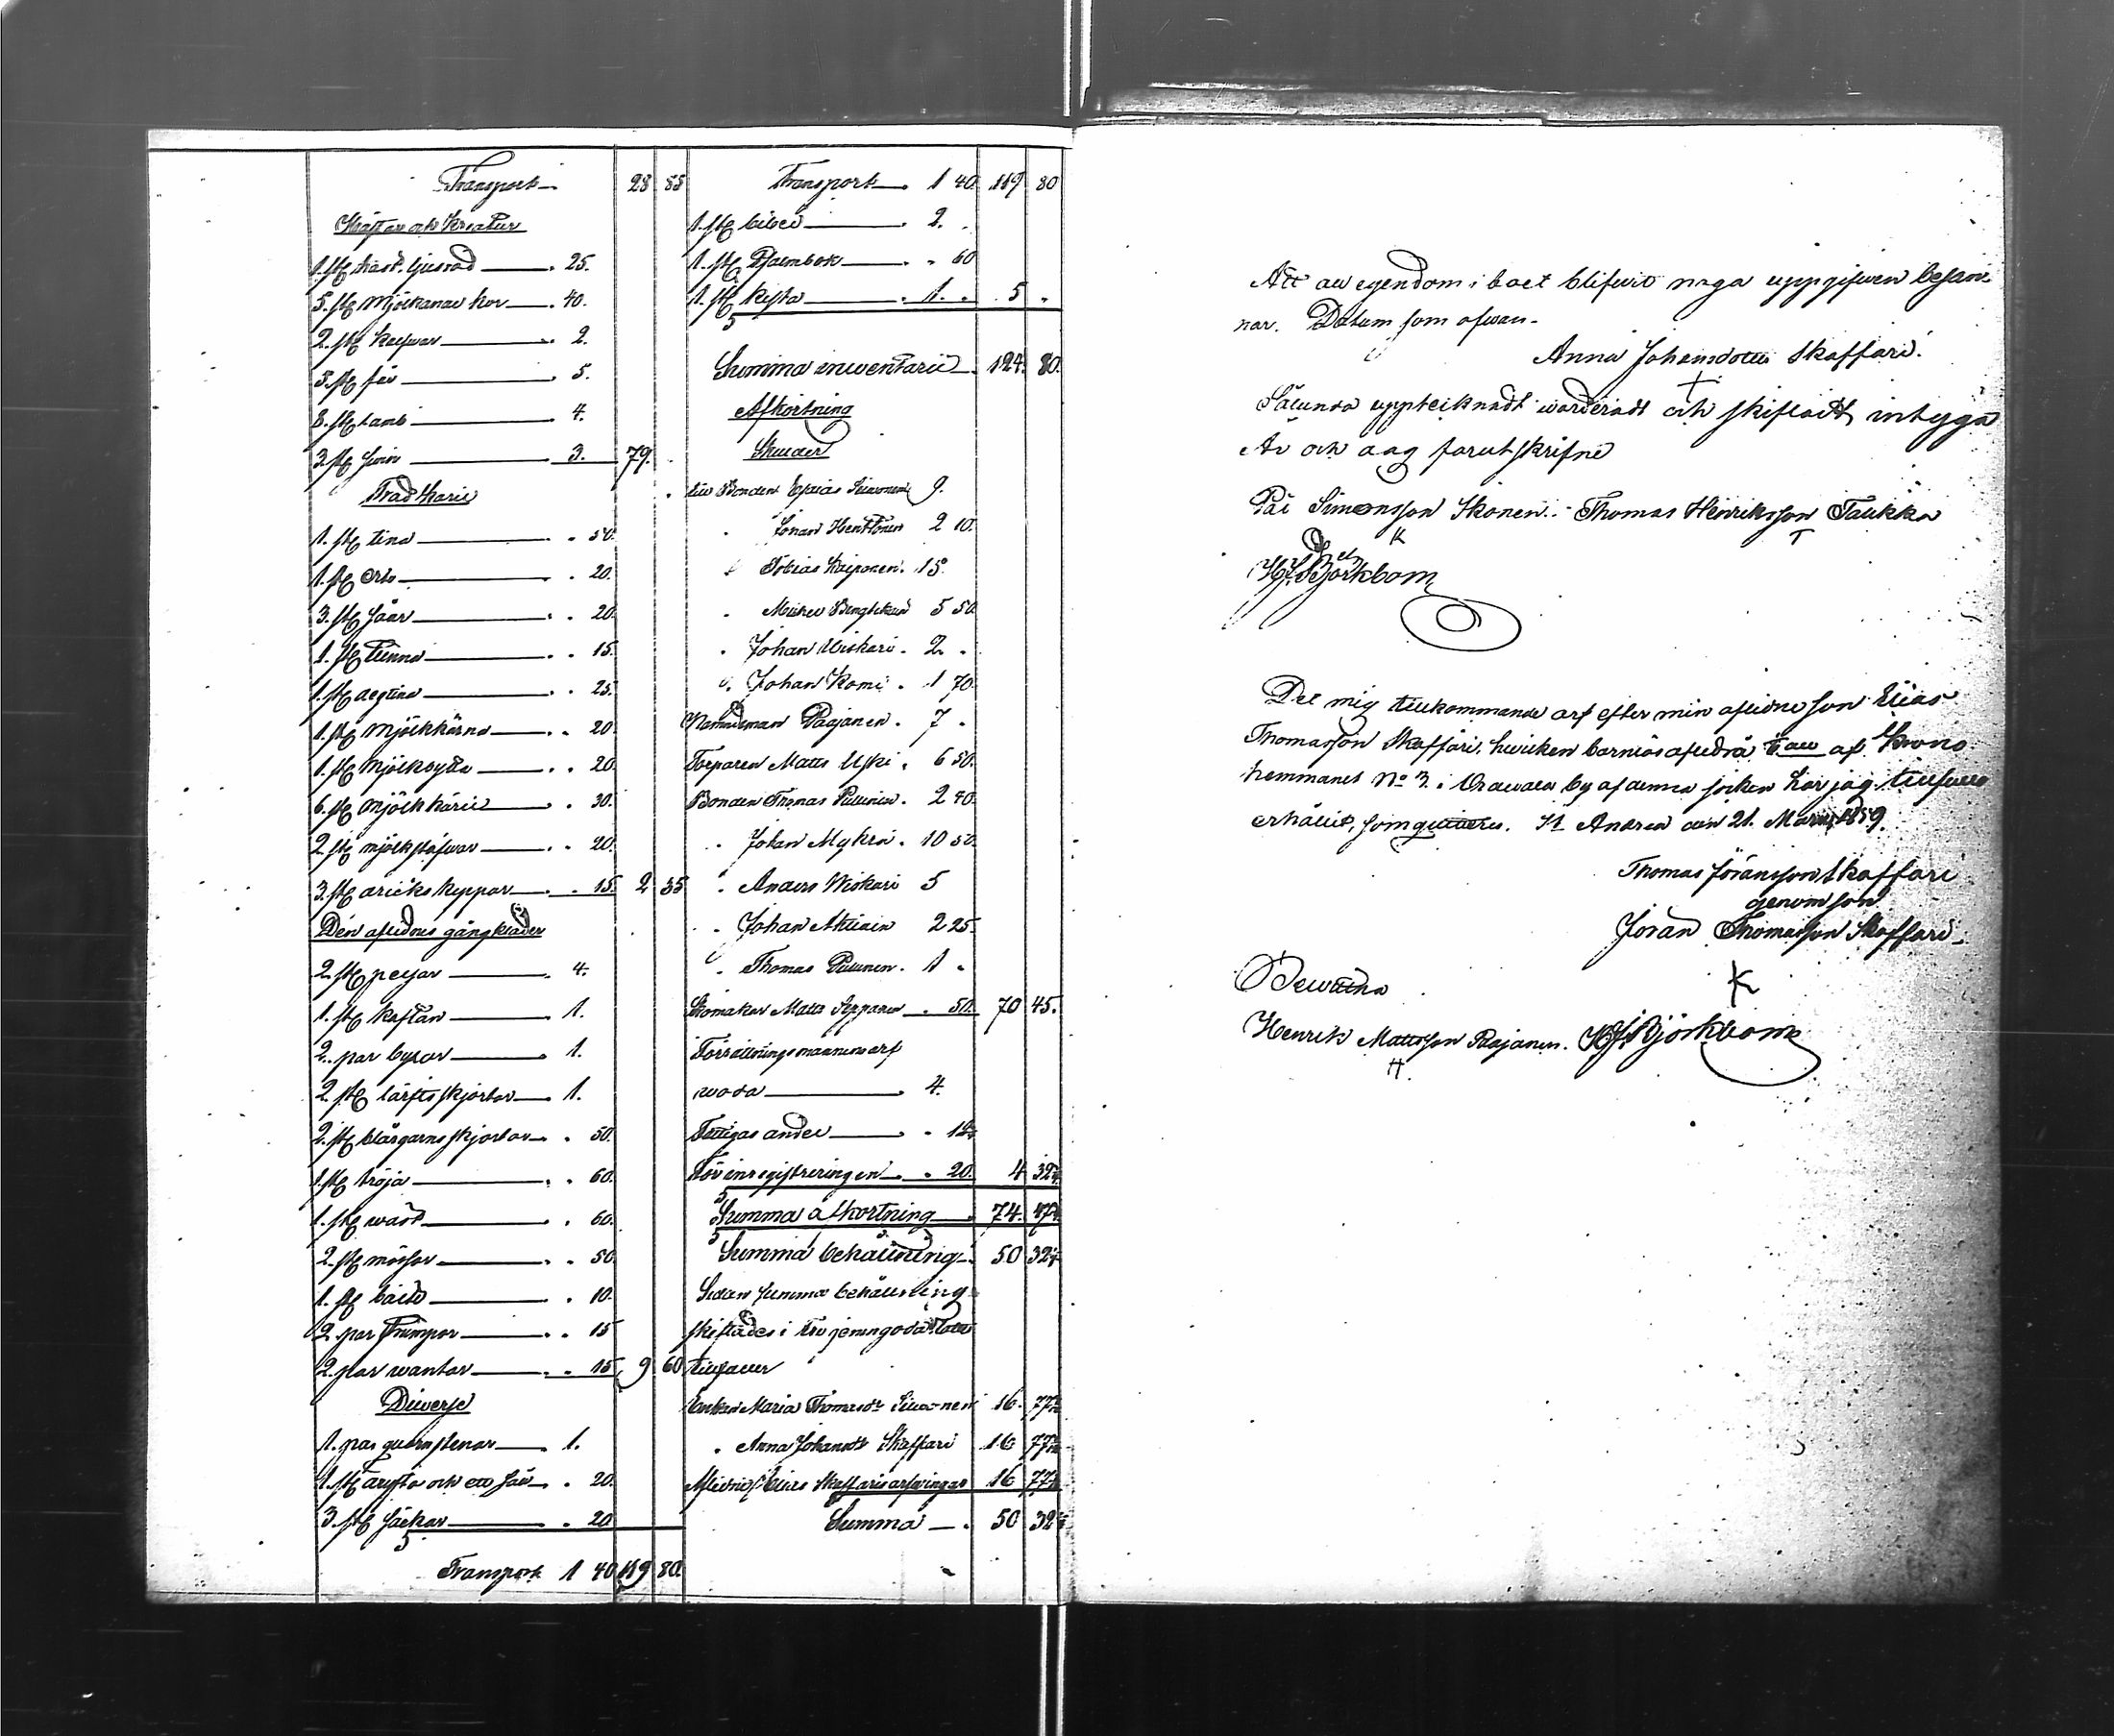 Transport 28 85
Hästar och Kreatur
1. st häst ljusröd 25.
5. st Mjölkande kor 40.
2. st kalfwar 2.
5. st får 5.
8. st lamb 4.
3. st swin 3. 79.
Träd Käril
1. st tina 50.
1. st 20.
3. st såar 20.
1. st Tunna 15.
1. st degtina 25.
1. st Mjölkkärna 20.
1. st Mjölkbytta 20.
6. st Mjölk käril 30.
2. st mjölkstäfwar 20.
3. st dricks käppar 15. 2 35
Den aflidnes gångkläder
2. st pelsar 4.
1. st kaftan 1.
2. par byxor 1.
2. st lärfts skjortor 1.
2. st blårgarns skjortor 50.
1. st tröja 60.
1. st wäst 60.
2. st mössor 50.
1. st bälte 10.
2. par strumpor 15
2. par wantar 15 9 60
Diverse
1. par quarnstenar 1.
1. st och ett såll 20.
3. st säckar 20
Transport 1 40 119 80.
Transport 1 40 119 80
1. st bibel 2.
1. st Psalmbok 60
1. st kista 1. 5
Summa inwentarii 124. 80.
Afkortning
Skulder
till Bonden Esaias 9.
Jonas Henttonen 2 10.
Tobias Kaiponen. 15.
Mickel 5 50
Johan Wiskari 2.
Johan Komi 1 70.
Nämndeman Paajanen 7.
Torparen Matts Uski 6 50.
Bonden Thomas Pullinen 2 40.
Johan Mykrä 10 50.
Anders Wiskari 5
Johan Akkiain 2 25.
Thomas Pullinen 1
Skomakar Matts Sepponen 50. 70 45.
Förrättningsmannens arf
wode 4.
Fattigas andel 12½
För inregistreringen 20. 4 32½
Summa afkortning 74. 47½
Summa behållning 50 32½
Sedan summa behållning
skiftades i tre jemngoda lotter
tillfaller
Enkan Maria Thomasdr 16. 77½
Anna Johansdr Skaffari 16 77½
Aflidne Elias Skaffaris arfwingar 16 77½
Summa 50 32½
Att all egendom i boet blifwit noga uppgifwen besan-
nar. Datum som ofwan.
Anna Johansdotter Skaffari.
Sålunda upptecknadt wärderadt och skiftadt intyga
År och dag förutskrifne
Pål Simonsson Ikonen. Thomas Henriksson Taukka
HJ Björkbom
Det mig tillkommande arf efter min aflidne son Elias
Thomasson Skaffari, hwilken barnlös afledit å hall af Krono
hemmanet No 3. i Orawala by af denna socken har jag tillfullo
erhållit, som quitteras. St Andrea den 21. Mars 1859.
Thomas Jöransson Skaffari
genom son
Jöran Thomasson Skaffari
Bewittna
Henrik Mattsson Paajanen. HJ Björkbom